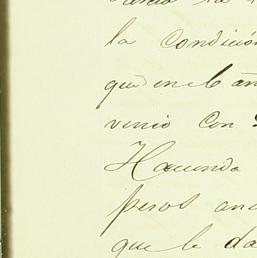 la condición
que en le an
venio con
Hacienda
pesos anu
que le da